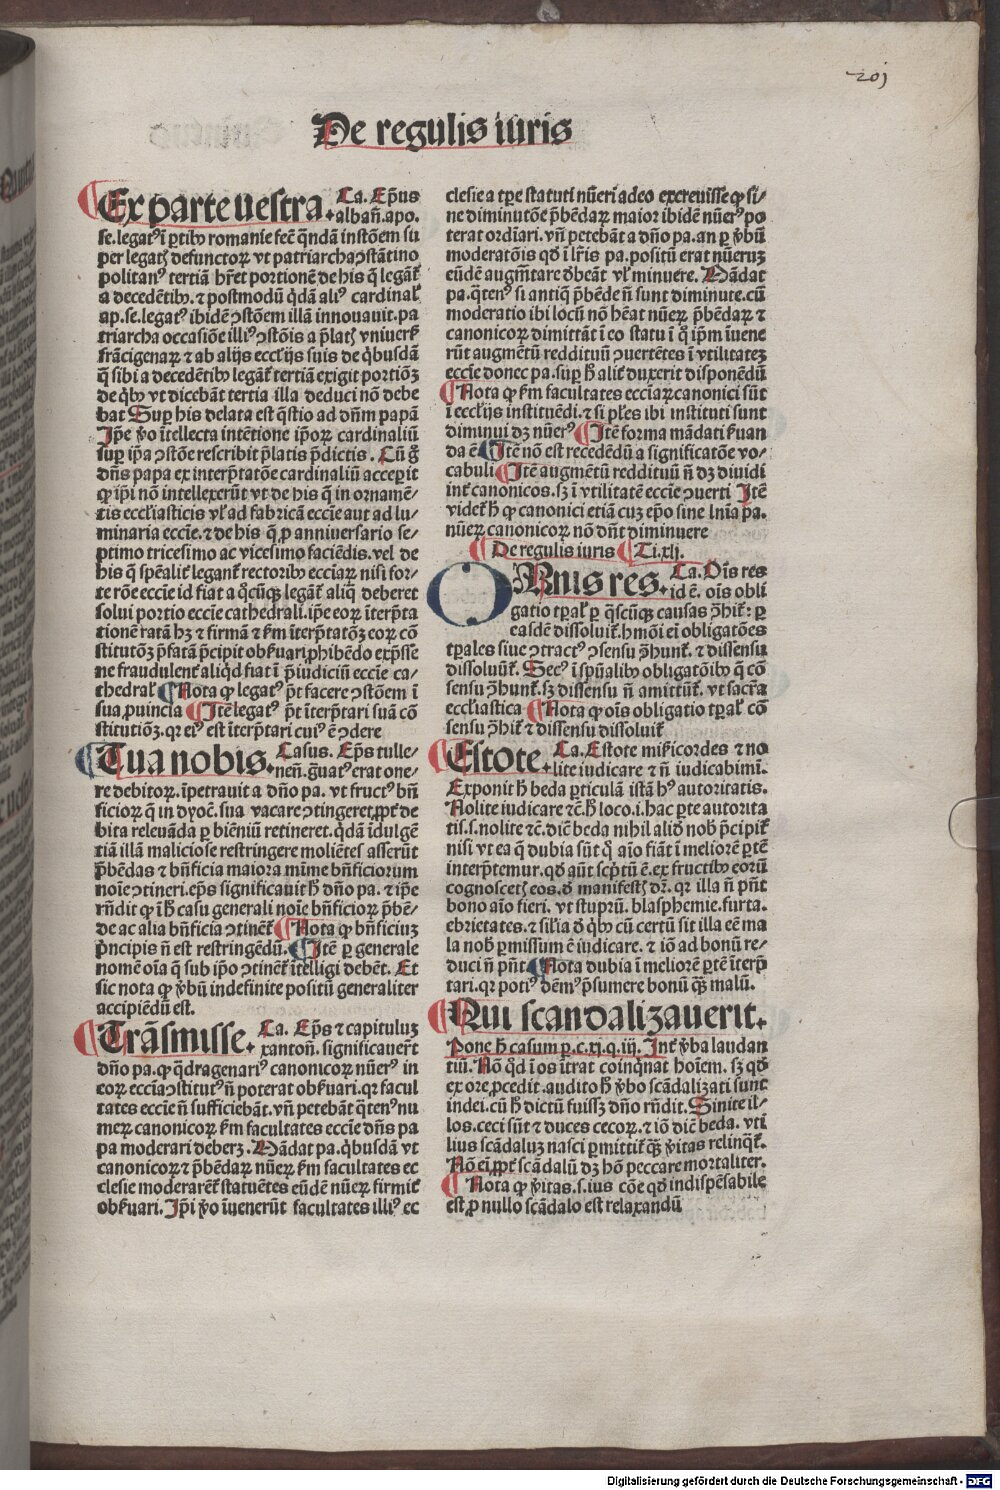 201
De regulis iuris
Ex parte uestra. Ca. Ep̃us
albañ. apo.
se. legatꝰ ĩ ꝑtibꝰ romanie fec̃ q̃ndã instõem su
per legatꝭ defunctoꝝ vt patriarcha ꝯstãtino
politanꝰ tertiã hr̃et portionẽ de his q̃ legãt̃
a decedẽtibꝰ. ⁊ postmodũ q̃dã aliꝰ cardinal̃
ap. se. legatꝰ ibidẽ ꝯstõem illã innouauit. pa
triarcha occasiõe illiꝰ ꝯstõis a p̃latꝭ vniuers̃
frãcigenaꝝ ⁊ ab alijs eccl̃ijs suis de q̃busdã
q̃ sibi a decedẽtibꝰ legãt̃ tertiã exigit portiõꝫ
de q̃bꝰ vt dicebãt tertia illa deduci nõ debe
bat Suꝑ his delata est q̃stio ad dñm papã
Ip̃e ꝟo ĩtellecta intẽtione ip̃oꝝ cardinaliũ
suꝑ ip̃a ꝯstõe rescribit p̃latis p̃dictis. Cũ g̃
dñs papa ex interp̃tatõe cardinaliũ acceꝑit
ꝙ ip̃i nõ intellexerũt vt de his q̃ in ornamẽ/
tis eccl̃iasticis vl̃ ad fabricã eccĩe aut ad lu/
minaria eccĩe. ⁊ de his q̃ ꝑ anniuersario se/
ptimo tricesimo ac vicesimo faciẽdis. vel de
his q̃ sp̃ealit̃ legant̃ rectoribꝰ eccĩaꝝ nisi for/
te rõe eccĩe id fiat a q̃cũqꝫ legãt̃ aliq̃ deberet
solui portio eccĩe cathedrali. ip̃e eoꝝ ĩterp̃ta
tionẽ ratã hꝫ ⁊ firmã ⁊ s̃m ĩterp̃tatõꝫ eoꝝ cõ
stitutõꝫ p̃fatã p̃cipit obs̃uari ꝓhibẽdo exp̃sse
ne fraudulent̃ aliq̃d fiat ĩ p̃iudiciũ eccĩe ca/
thedral̃ Nota ꝙ legatꝰ p̃t facere ꝯstõem ĩ
sua ꝓuincia Itẽ legatꝰ p̃t ĩterp̃tari suã cõ
stitutiõꝫ. qꝛ eiꝰ est ĩterp̃tari cuiꝰ ẽ ꝯdere
Tua nobis. Casus. Ep̃s tulle/
neñ. g̃uatꝰ erat one/
re debitoꝝ. ĩpetrauit a dño pa. vt fructꝰ bñ
ficioꝝ q̃ in dyoc̃. sua vacare ꝯtingeret ꝓpt̃ de
bita releuãda ꝑ biẽniũ retineret. q̃dã ĩdulgẽ
tiã illã maliciose restringere moliẽtes asserũt
p̃bẽdas ⁊ bñficia maiora mĩme bñficiorum
noĩe ꝯtineri. ep̃s significauit h̃ dño pa. ⁊ ip̃e
rñdit ꝙ ĩ h̃ casu generali noĩe bñficioꝝ p̃bẽ/
de ac alia bñficia ꝯtinẽt̃ Nota ꝙ bñficiuꝫ
p̃ncipis ñ est restringẽdũ. Itẽ ꝑ generale
nomẽ oĩa q̃ sub ip̃o ꝯtinẽt̃ ĩtelligi debẽt. Et
sic nota ꝙ ꝟbũ indefinite positũ generaliter
accipiẽdũ est.
Trãsmisse. Ca. Ep̃s ⁊ capituluꝫ
xantoñ. significauer̃t
dño pa. ꝙ q̃dragenariꝰ canonicoꝝ nũerꝰ in
eoꝝ eccĩa ꝯstitutꝰ ñ poterat obs̃uari. qꝛ facul
tates eccĩe ñ sufficiebãt. vñ petebãt q̃tenꝰ nu
meꝝ canonicoꝝ s̃m facultates eccĩe dñs pa
pa moderari deberꝫ. Mãdat pa. q̃busdã vt
canonicoꝝ ⁊ p̃bẽdaꝝ nũeꝝ s̃m facultates ec
clesie moderarẽt̃ statuẽtes eũdẽ nũeꝝ firmit̃
obs̃uari. Ip̃i ꝟo ĩuenerũt facultates illiꝰ ec
clesie a tꝑe statuti nũeri adeo excreuisse ꝙ si/
ne diminutõe p̃bẽdaꝝ maior ibidẽ nũerꝰ po
terat ordĩari. vñ petebãt a dño pa. an ꝑ ꝟbũ
moderatõis qd̃ ĩ lr̃is pa. positũ erat nũeruꝫ
eũdẽ augm̃tare d̃beãt vl̃ minuere. Mãdat
pa. q̃tenꝰ si antiq̃ p̃bẽde ñ sunt diminute. cũ
moderatio ibi locũ nõ hẽat nũeꝝ p̃bẽdaꝝ ⁊
canonicoꝝ dimittãt ĩ eo statu ĩ q̃ ip̃m ĩuene
rũt augmẽtũ reddituũ ꝯuertẽtes ĩ vtilitateꝫ
eccĩe donec pa. suꝑ h̃ alit̃ duxerit disponẽdũ
Nota ꝙ s̃m facultates eccĩaꝝ canonici sũt
ĩ eccl̃ijs instituẽdi. ⁊ si pl̃es ibi instituti sunt
diminui dꝫ nũerꝰ Itẽ forma mãdati s̃uan
da ẽ Itẽ nõ est recedẽdũ a significatõe vo/
cabuli Itẽ augmẽtũ reddituũ ñ dꝫ diuidi
int̃ canonicos. sꝫ ĩ vtilitatẽ eccĩe ꝯuerti Itẽ
videt̃ h̃ ꝙ canonici etiã cuꝫ ep̃o sine lñia pa.
nũeꝝ canonicoꝝ nõ dñt diminuere
De regulis iuris Ti. xlj.
OMnis res. Ca. Oĩs res
id ẽ. oĩs obli
gatio tꝑal̃ ꝑ q̃scũqꝫ causas ꝯ̃hit̃: ꝑ
easdẽ dissoluit̃. hmõi ei̇ obligatões
tꝑales siue ꝯtractꝰ ꝯsensu ꝯ̃hunt̃. ⁊ dissensu
dissoluũt̃. Secꝰ ĩ sp̃ualibꝰ obligatõibꝰ q̃ cõ
sensu ꝯ̃hunt̃. sꝫ dissensu ñ amittũt̃. vt sacr̃a
eccl̃iastica Nota ꝙ oĩs obligatio tꝑal̃ cõ
sensu ꝯ̃hit̃ ⁊ dissensu dissoluit̃
Estote. Ca. Estote mis̃icordes ⁊ no
lite iudicare ⁊ ñ iudicabimĩ.
Exponit h̃ beda ꝑticulã istã hꝰ autoritatis.
Nolite iudicare ⁊c̃. h̃ loco. i. hac ꝑte autorita
tis. s. nolite ⁊c̃. diẽ beda nihil aliď nob̃ p̃cipit̃
nisi vt ea q̃ dubia sũt q̃ aĩo fiãt ĩ meliorẽ ꝑtẽ
interp̃temur. qd̃ aũt scp̃tũ ẽ. ex fructibꝰ eorũ
cognoscetꝭ eos. d̃ manifestꝭ dr̃. qꝛ illa ñ p̃ñt
bono aĩo fieri. vt stuprũ. blasphemie. furta.
ebrietates. ⁊ sil̃ia d̃ q̃bꝰ cũ certũ sit illa eẽ ma
la nob̃ ꝑmissum ẽ iudicare. ⁊ iõ ad bonũ re/
duci ñ p̃ñt Nota dubia ĩ meliorẽ ꝑtẽ ĩterp̃
tari. qꝛ potiꝰ dẽmꝰ p̃sumere bonũ q̃ꝫ malũ.
Qui scandalizauerit.
Pone h̃ casum ꝑ. c. xj. q. iij. Int̃ ꝟba laudan
tiũ. Nõ q̃d ĩ os ĩtrat coinq̃nat hoĩem. sꝫ qd̃
ex ore ꝓcedit. audito h̃ ꝟbo scãdalizati sunt
iudei. cũ h̃ dictũ fuissꝫ dño rñdit. Sinite il/
los. ceci sũt ⁊ duces cecoꝝ. ⁊ iõ diẽ beda. vti
lius scãdaluꝫ nasci ꝑmittit̃ q̃ꝫ ꝟitas relinq̃t̃.
Nõ ei̇ ꝓpt̃ scãdalũ dꝫ hõ peccare mortaliter.
Nota ꝙ ꝟitas. s. ius cõe qd̃ indispẽsabile
est ꝓ nullo scãdalo est relaxandũ
Digitalisierung gefördert durch die Deutsche Forschungsgemeinschaft - DFG